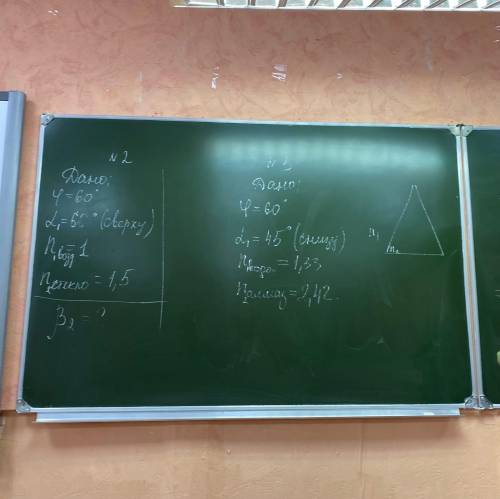 №2
Дано:
φ=60°
α₁=60° (сверху)
n возд = 1
n стекло = 1,5
β₂ = ?
Дано:
φ=60°
α₁=45° (снизу)
= 1,33
n алмаз = 2,42
n₁
n₂